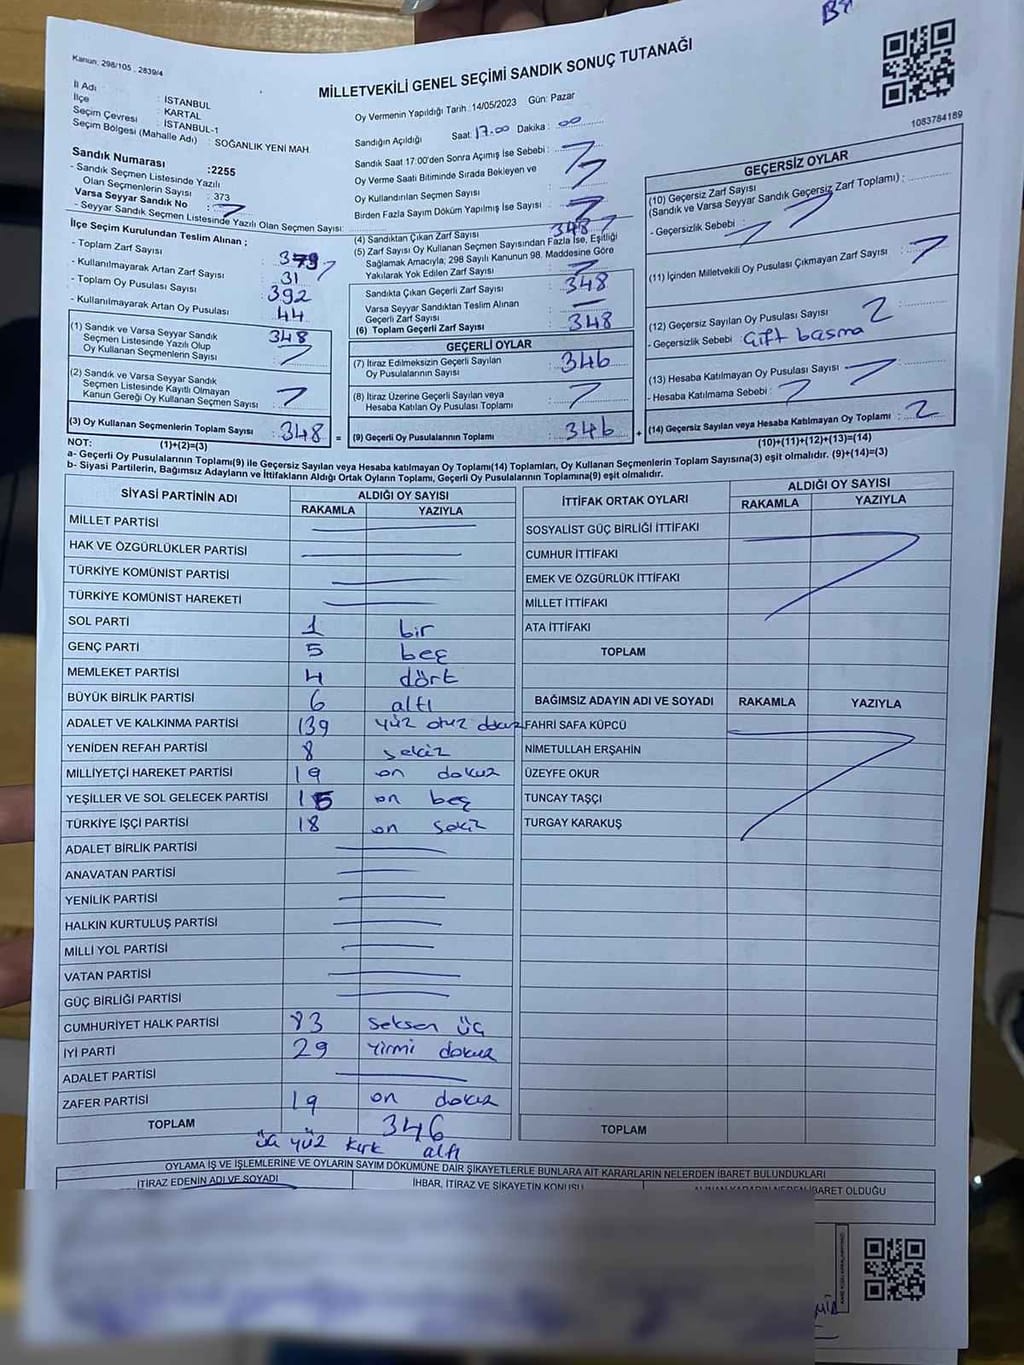 Kanun: 298/105 , 2839/4
MİLLETVEKİLİ GENEL SEÇİMİ SANDIK SONUÇ TUTANAĞI
İl Adı : İSTANBUL
İlçe : KARTAL
Seçim Çevresi : İSTANBUL-1
Seçim Bölgesi (Mahalle Adı) : SOĞANLIK YENİ MAH.
Sandık Numarası :2255
- Sandık Seçmen Listesinde Yazılı
Olan Seçmenlerin Sayısı : 373
Varsa Seyyar Sandık No :
- Seyyar Sandık Seçmen Listesinde Yazılı Olan Seçmen Sayısı:
Oy Vermenin Yapıldığı Tarih :14/05/2023 Gün: Pazar
Sandığın Açıldığı Saat: 17.00 Dakika : 00
Sandık Saat 17:00'den Sonra Açılmış İse Sebebi :
Oy Verme Saati Bitiminde Sırada Bekleyen ve
Oy Kullandırılan Seçmen Sayısı :
Birden Fazla Sayım Döküm Yapılmış İse Sayısı :
1083784189
İlçe Seçim Kurulundan Teslim Alınan ;
- Toplam Zarf Sayısı : 379
- Kullanılmayarak Artan Zarf Sayısı : 31
- Toplam Oy Pusulası Sayısı : 392
- Kullanılmayarak Artan Oy Pusulası : 44
(1) Sandık ve Varsa Seyyar Sandık
Seçmen Listesinde Yazılı Olup
Oy Kullanan Seçmenlerin Sayısı : 348
(2) Sandık ve Varsa Seyyar Sandık
Seçmen Listesinde Kayıtlı Olmayan
Kanun Gereği Oy Kullanan Seçmen Sayısı :
(3) Oy Kullanan Seçmenlerin Toplam Sayısı : 348 =
(4) Sandıktan Çıkan Zarf Sayısı : 348
(5) Zarf Sayısı Oy Kullanan Seçmen Sayısından Fazla İse, Eşitliği
Sağlamak Amacıyla; 298 Sayılı Kanunun 98. Maddesine Göre
Yakılarak Yok Edilen Zarf Sayısı :
Sandıkta Çıkan Geçerli Zarf Sayısı : 348
Varsa Seyyar Sandıktan Teslim Alınan
Geçerli Zarf Sayısı :
(6) Toplam Geçerli Zarf Sayısı : 348
GEÇERLİ OYLAR
(7) İtiraz Edilmeksizin Geçerli Sayılan
Oy Pusulalarının Sayısı : 346
(8) İtiraz Üzerine Geçerli Sayılan veya
Hesaba Katılan Oy Pusulası Toplamı :
(9) Geçerli Oy Pusulalarının Toplamı : 346 +
GEÇERSİZ OYLAR
(10) Geçersiz Zarf Sayısı
(Sandık ve Varsa Seyyar Sandık Geçersiz Zarf Toplamı) :
- Geçersizlik Sebebi :
(11) İçinden Milletvekili Oy Pusulası Çıkmayan Zarf Sayısı :
(12) Geçersiz Sayılan Oy Pusulası Sayısı : 2
- Geçersizlik Sebebi : Çift basma
(13) Hesaba Katılmayan Oy Pusulası Sayısı :
- Hesaba Katılmama Sebebi :
(14) Geçersiz Sayılan veya Hesaba Katılmayan Oy Toplamı : 2
NOT: (1)+(2)=(3) (10)+(11)+(12)+(13)=(14)
a- Geçerli Oy Pusulalarının Toplamı(9) ile Geçersiz Sayılan veya Hesaba katılmayan Oy Toplamı(14) Toplamları, Oy Kullanan Seçmenlerin Toplam Sayısına(3) eşit olmalıdır. (9)+(14)=(3)
b- Siyasi Partilerin, Bağımsız Adayların ve İttifakların Aldığı Ortak Oyların Toplamı, Geçerli Oy Pusulalarının Toplamına(9) eşit olmalıdır.
SİYASİ PARTİNİN ADI ALDIĞI OY SAYISI
RAKAMLA YAZIYLA
MİLLET PARTİSİ
HAK VE ÖZGÜRLÜKLER PARTİSİ
TÜRKİYE KOMÜNİST PARTİSİ
TÜRKİYE KOMÜNİST HAREKETİ
SOL PARTİ 1 bir
GENÇ PARTİ 5 beş
MEMLEKET PARTİSİ 4 dört
BÜYÜK BİRLİK PARTİSİ 6 altı
ADALET VE KALKINMA PARTİSİ 139 yüz otuz dokuz
YENİDEN REFAH PARTİSİ 8 sekiz
MİLLİYETÇİ HAREKET PARTİSİ 19 on dokuz
YEŞİLLER VE SOL GELECEK PARTİSİ 15 on beş
TÜRKİYE İŞÇİ PARTİSİ 18 on sekiz
ADALET BİRLİK PARTİSİ
ANAVATAN PARTİSİ
YENİLİK PARTİSİ
HALKIN KURTULUŞ PARTİSİ
MİLLİ YOL PARTİSİ
VATAN PARTİSİ
GÜÇ BİRLİĞİ PARTİSİ
CUMHURİYET HALK PARTİSİ 83 seksen üç
İYİ PARTİ 29 yirmi dokuz
ADALET PARTİSİ
ZAFER PARTİSİ 19 on dokuz
TOPLAM 346
üç yüz kırk altı
İTTİFAK ORTAK OYLARI ALDIĞI OY SAYISI
RAKAMLA YAZIYLA
SOSYALİST GÜÇ BİRLİĞİ İTTİFAKI
CUMHUR İTTİFAKI
EMEK VE ÖZGÜRLÜK İTTİFAKI
MİLLET İTTİFAKI
ATA İTTİFAKI
TOPLAM
BAĞIMSIZ ADAYIN ADI VE SOYADI RAKAMLA YAZIYLA
FAHRİ SAFA KÜPCÜ
NİMETULLAH ERŞAHİN
ÜZEYFE OKUR
TUNCAY TAŞÇI
TURGAY KARAKUŞ
TOPLAM
OYLAMA İŞ VE İŞLEMLERİNE VE OYLARIN SAYIM DÖKÜMÜNE DAİR ŞİKAYETLERLE BUNLARA AİT KARARLARIN NELERDEN İBARET BULUNDUKLARI
İTİRAZ EDENİN ADI VE SOYADI İHBAR, İTİRAZ VE ŞİKAYETİN KONUSU ALINAN KARARIN NEDEN İBARET OLDUĞU